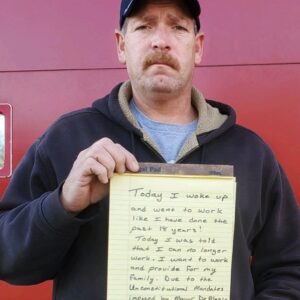 Today I woke up
and went to work
like I have done the
past 18 years!
Today I was told
that I can no longer
work. I want to work
and provide for my
family. Due to the
Unconstitutional Mandates
imposed by Mayor De Blasio